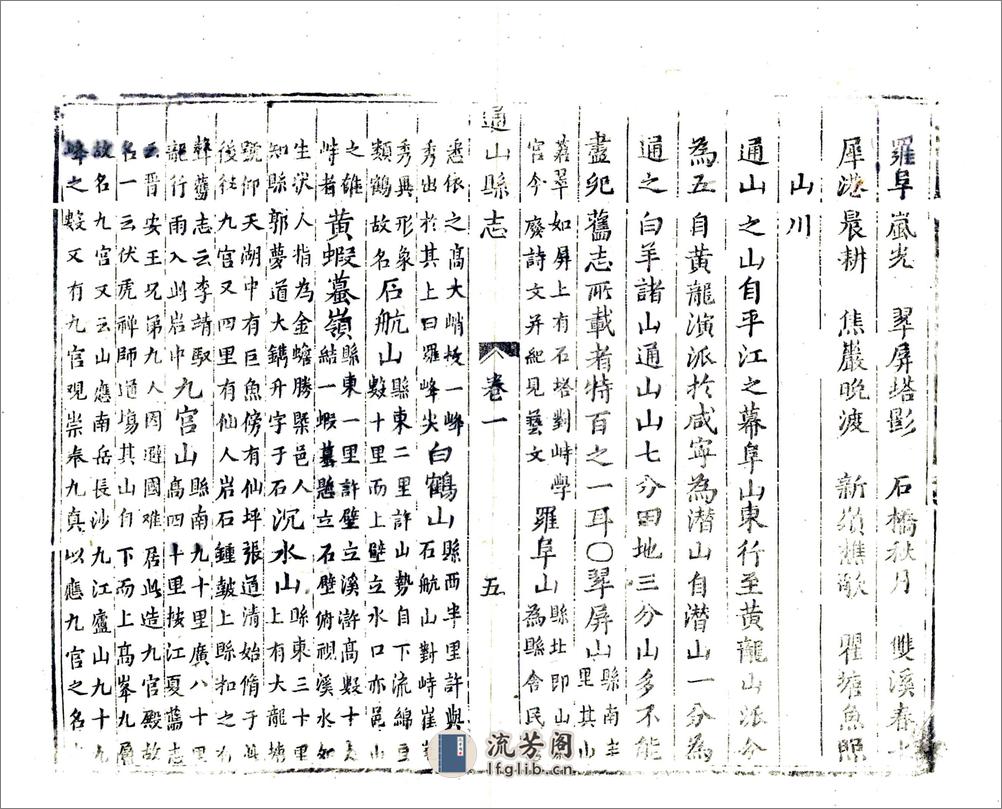 羅阜嵐光 翠屏塔影 石橋秋月 雙溪春
犀港晨耕 焦巖晚渡 新嶺樵歌 瞿塘魚照
山川
通山之山自平江之幕阜山東行至黃龍山派分
為五自黃龍演派於咸寧為潛山自潛山一分為
通之白羊諸山通山山七分田地三分山多不能
盡紀舊志所載者特百之一耳〇翠屏山縣南
里其山
蒼翠如屏上有石塔對峙學
宮今廢詩文并紀見藝文
羅阜山縣北即山
為縣舍民
通山縣志 卷一 五
悉依之高大峭拔一峰
秀出於其上曰羅峰尖
白鶴山縣西半里許與
石航山對峙崔
秀異形象
類鶴故名
石航山縣東二里許山勢自下流綿亘
數十里而上壁立水口亦邑山
之雄
峙者
黃蝦蟇嶺縣東一里許壁立溪滸高數十
結一蝦蟇懸立石壁俯視溪水如
生狀人指為金蟾勝槩邑人
知縣郭夢道大鐫升字于石
沉水山縣東三十里
上有大龍塘
號仰天湖中有巨魚傍有仙坪張道清始脩于
後往九宮又四里有仙人岩石鍾皷上縣扣之有
聲舊志云李靖馭
龍行雨入此岩中
九宮山縣南九十里廣八十里
高四十里按江夏舊志
云晋安王兄弟九人因避國难居此造九宮殿故
名一云伏虎禅師道塲其山自下而上高峯九層
故名九宮又云山應南岳長沙九江廬山九十九
峰之數又有九宮观崇奉九真以應九宮之名
流芳阁
lfglib.cn